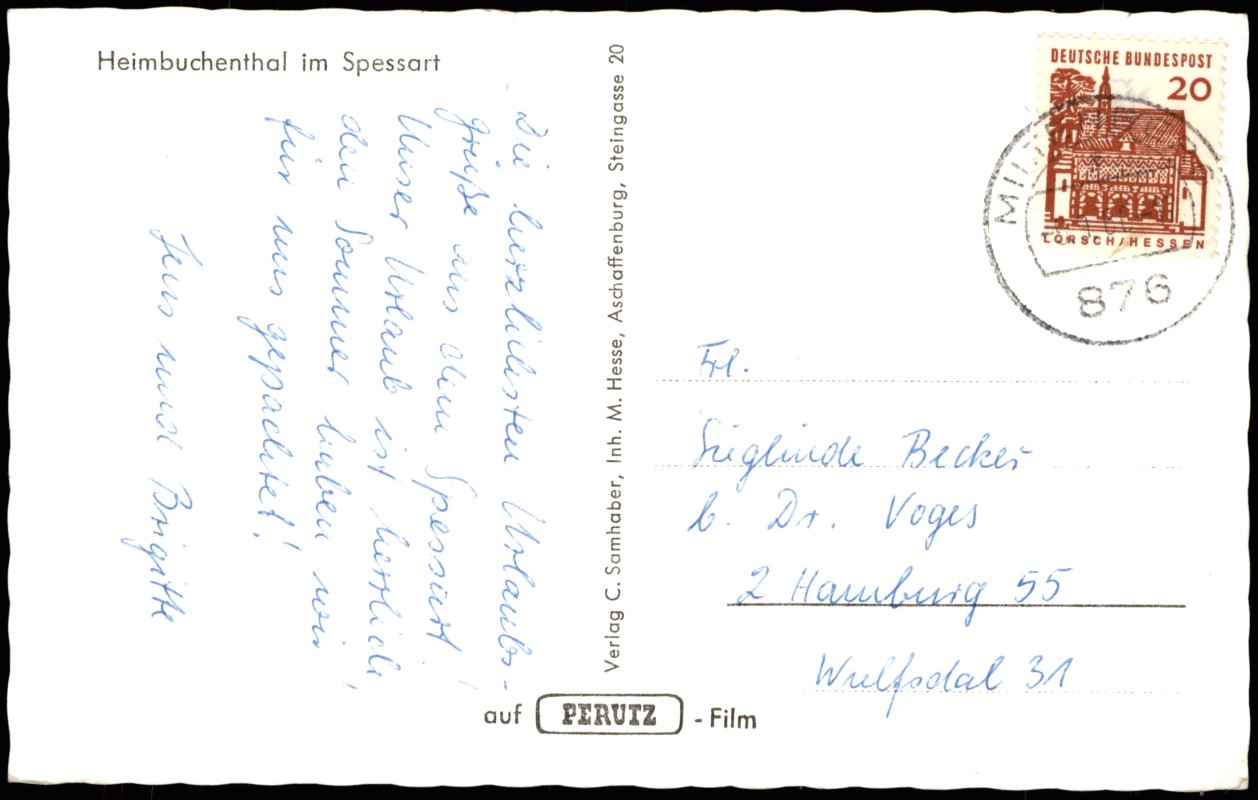 Heimbuchenthal im Spessart
Die herzlichsten Urlaubs-
grüße aus dem Spessart!
Unser Urlaub ist herrlich,
den Sommer haben wir
für uns gepachtet!
Jens und Brigitte
Verlag C. Samhaber, Inh. M. Hesse, Aschaffenburg, Steingasse 20
auf PERUTZ - Film
DEUTSCHE BUNDESPOST
20
LORSCH/HESSEN
876
Frl.
Sieglinde Becker
b. Dr. Voges
2 Hamburg 55
Wulfsdal 31